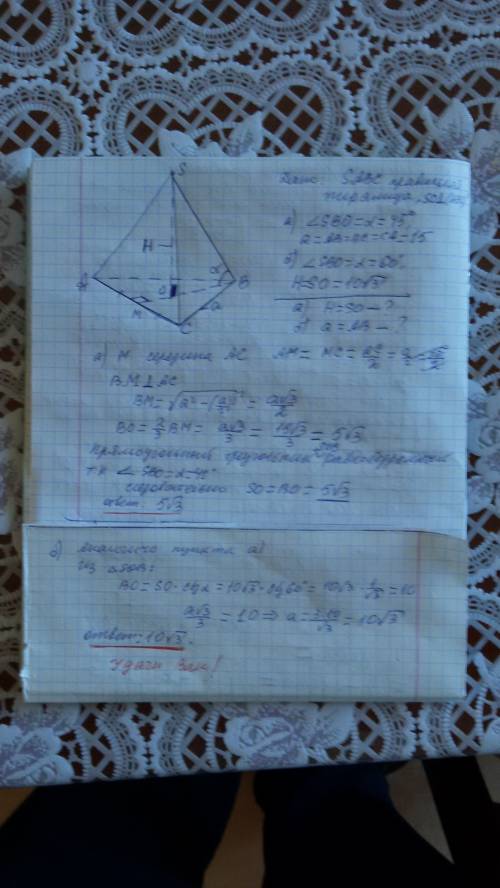 S
H
A
O
α
B
M
a
C
Дано: SABC правильная
пирамида,
а) ∠SBO=α=45°
a=AB=BC=CA=15
б) ∠SBO=α=60°
H=SO=10√3
а) H=SO-?
б) a=AB-?
а) M середина AC AM=MC=
BM⊥AC
BM=√a²-(a/2)²=a√3/2
BO=2/3BM=a√3/3=15√3/3=5√3
прямоугольный треугольник равнобедренный
т.к ∠SBO=α=45°
следовательно SO=BO=5√3
ответ: 5√3
б) аналогично пункта а)
из △SOB:
BO=SO·ctgα=10√3·ctg60°=10√3·1/√3=10
a√3/3=10⇒a=3·10/√3=10√3
ответ:10√3.
Удачи Вам!